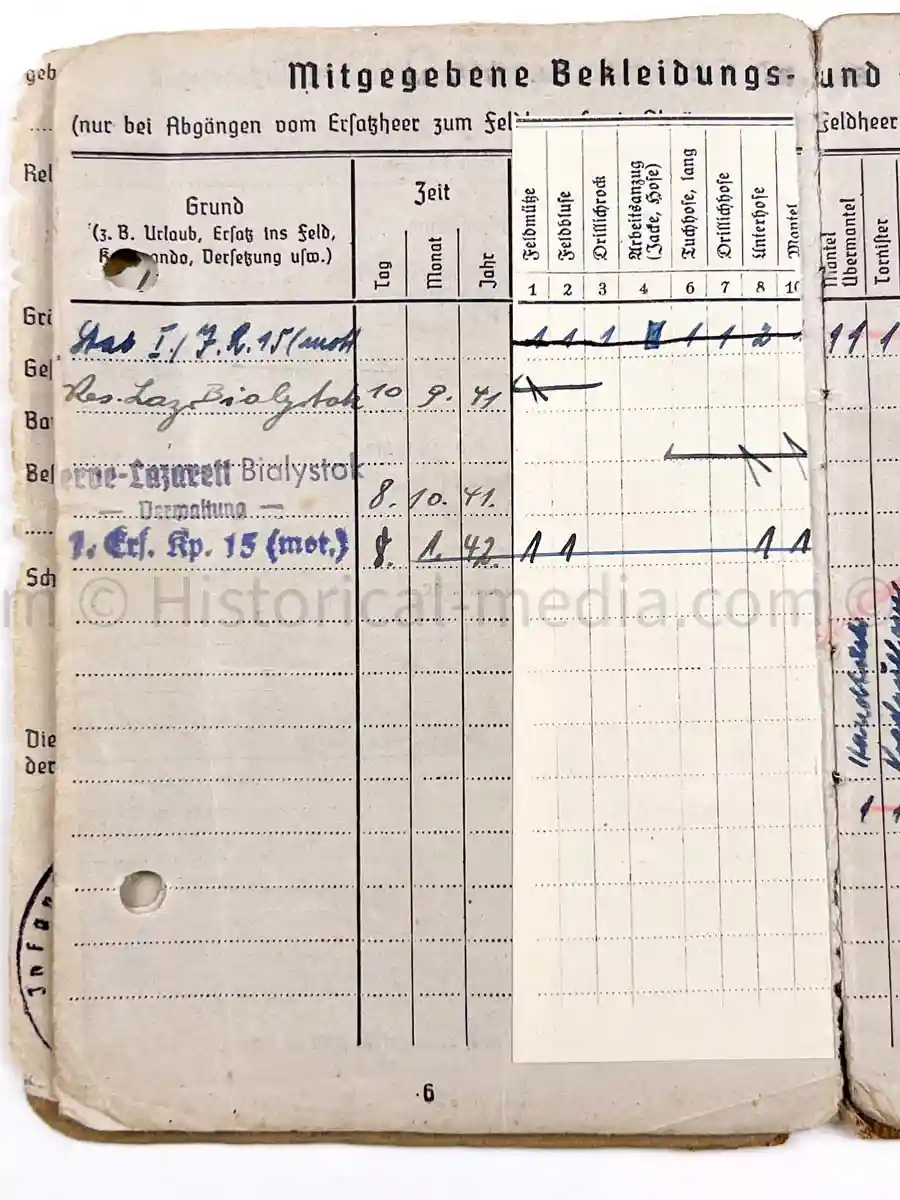 Mitgegebene Bekleidungs- und
(nur bei Abgängen vom Ersatzheer zum Fel
Feldheer
geb
Rel
Grund
(z. B. Urlaub, Ersatz ins Feld,
ando, Versetzung usw.)
Zeit
Tag
Monat
Jahr
Feldmütze
Feldbluse
Drillichrock
Arbeitsanzug
(Jacke, Hose)
Tuchhose, lang
Drillichhose
Unterhose
Mantel
Mantel
Übermantel
Tornister
1 2 3 4 6 7 8 10
Gri
Stab I./J.R.15(mot) 1 1 1 1 1 2 1 11 1
Ges
Res. Laz. Bialystok 10 9. 41
Ba
Bes
erve-Lazarett Bialystok
— Verwaltung — 8. 10. 41.
1. Ers. Kp. 15 (mot.) 8. 1. 42. 1 1 1 1
Sch
m © Historical-media.com ©
Die
der
1 1
Infan
6